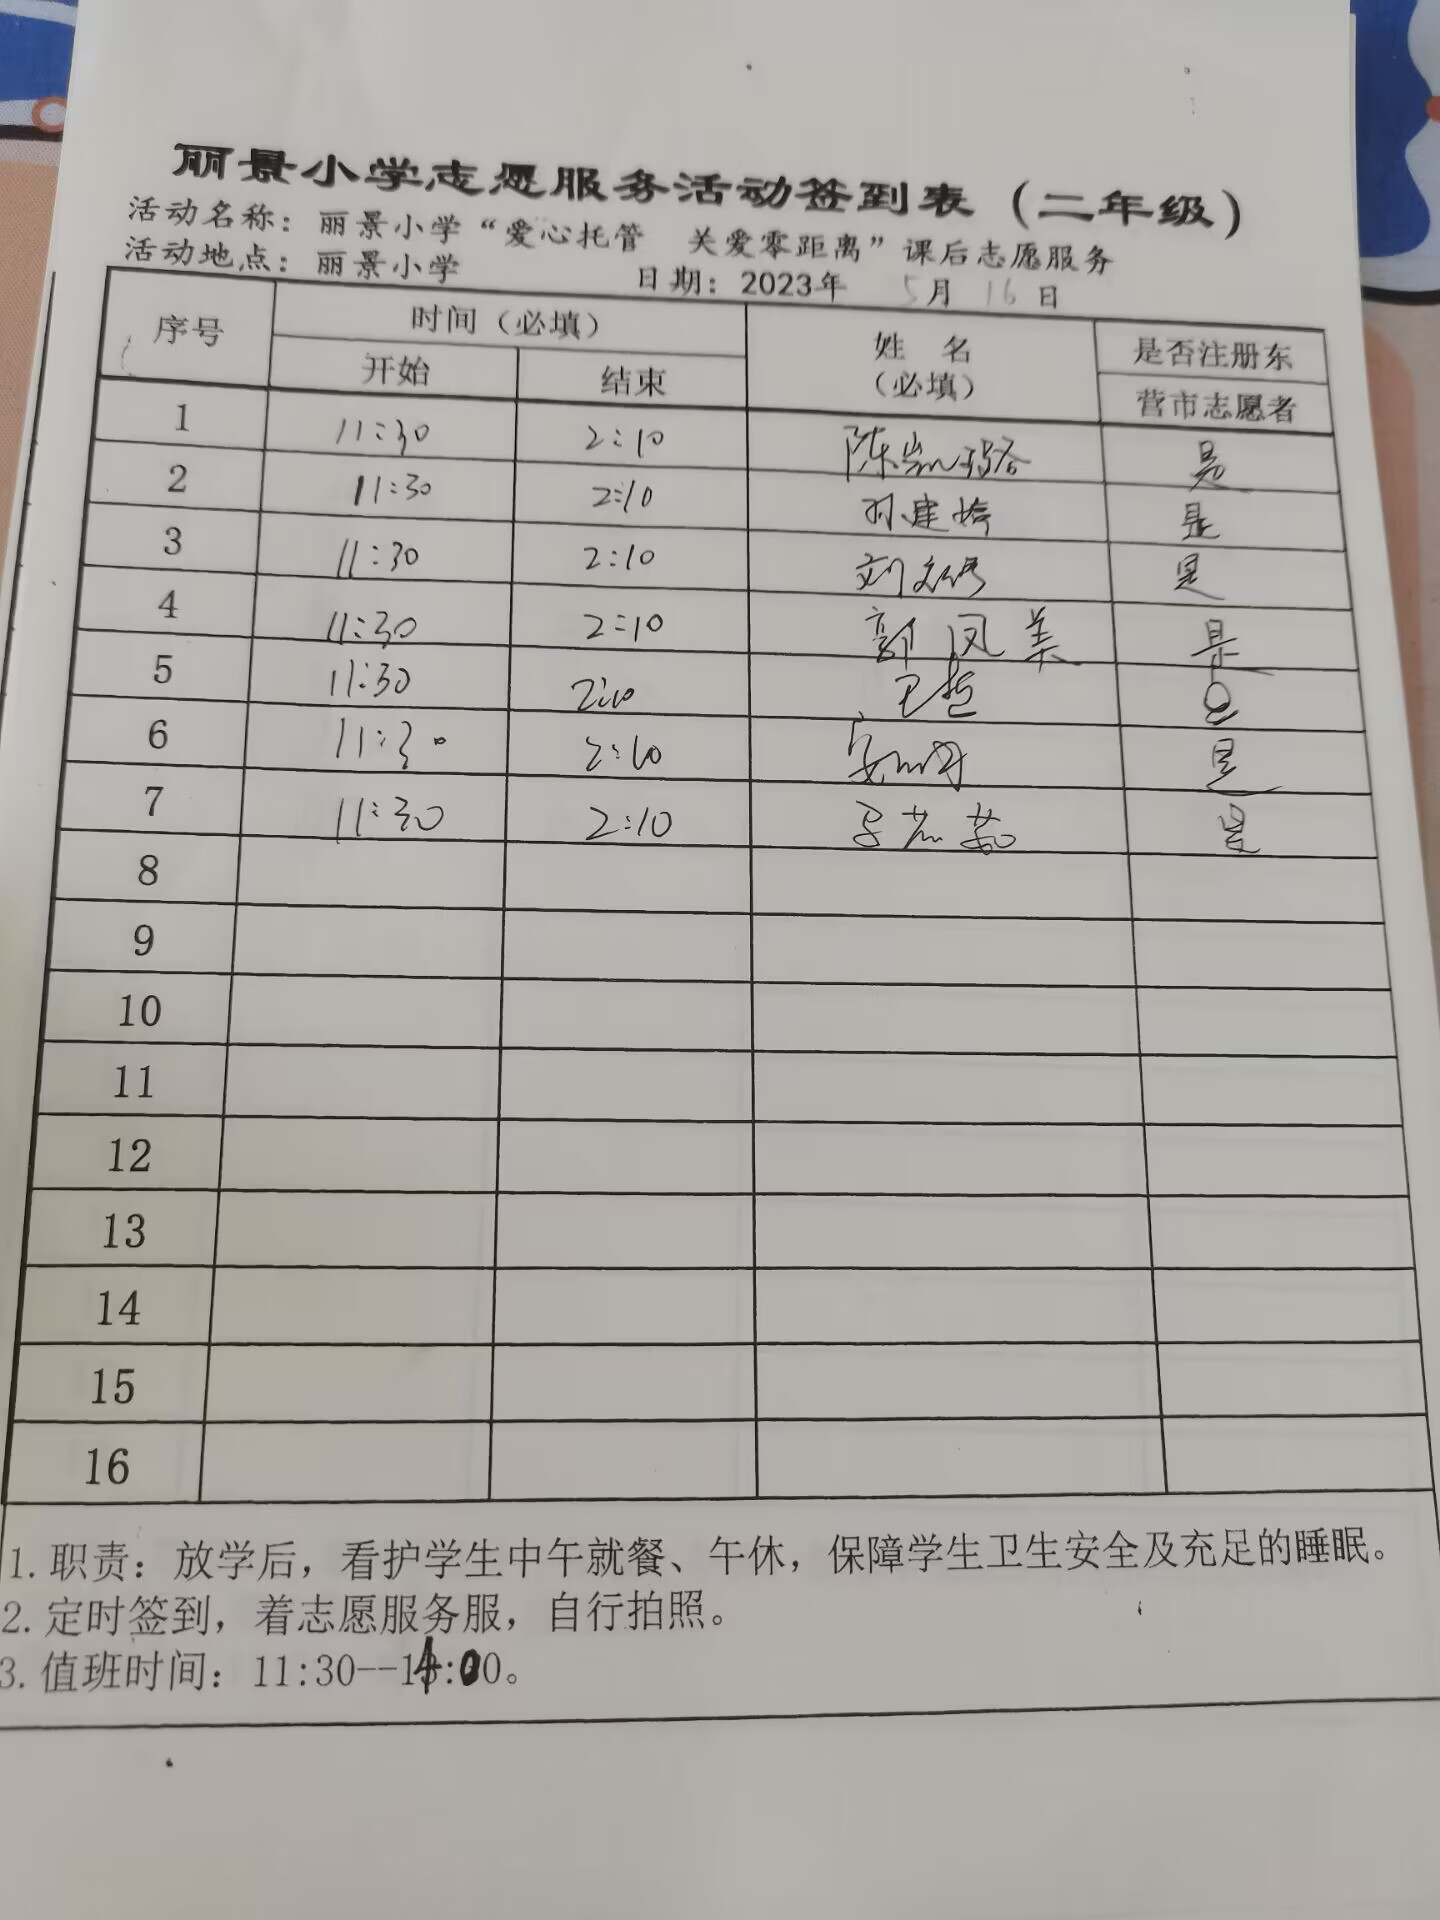 丽景小学志愿服务活动签到表（二年级）
活动名称：丽景小学“爱心托管 关爱零距离”课后志愿服务
活动地点：丽景小学 日期：2023年 5月 16日
序号 时间（必填） 姓 名（必填） 是否注册东营市志愿者
开始 结束
1 11:30 2:10 是
2 11:30 2:10 孙建婷 是
3 11:30 2:10 是
4 11:30 2:10 郭凤美 是
5 11:30 2:10 是
6 11:30 2:10 是
7 11:30 2:10 是
8
9
10
11
12
13
14
15
16
1. 职责：放学后，看护学生中午就餐、午休，保障学生卫生安全及充足的睡眠。
2. 定时签到，着志愿服务服，自行拍照。
3. 值班时间：11:30--14:00。